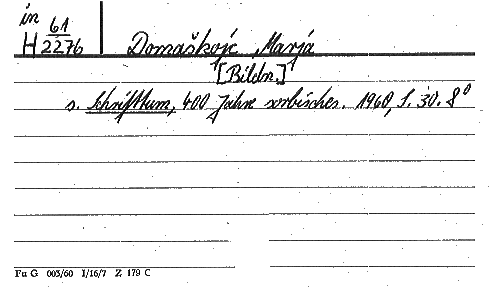 in
H 61/2276 Domaškojc, Marja
[Bildn.]
s. Schrifttum, 400 Jahre sorbisches. 1960, S. 30. 8°
Fu G 003/60 I/16/7 Z 179 C